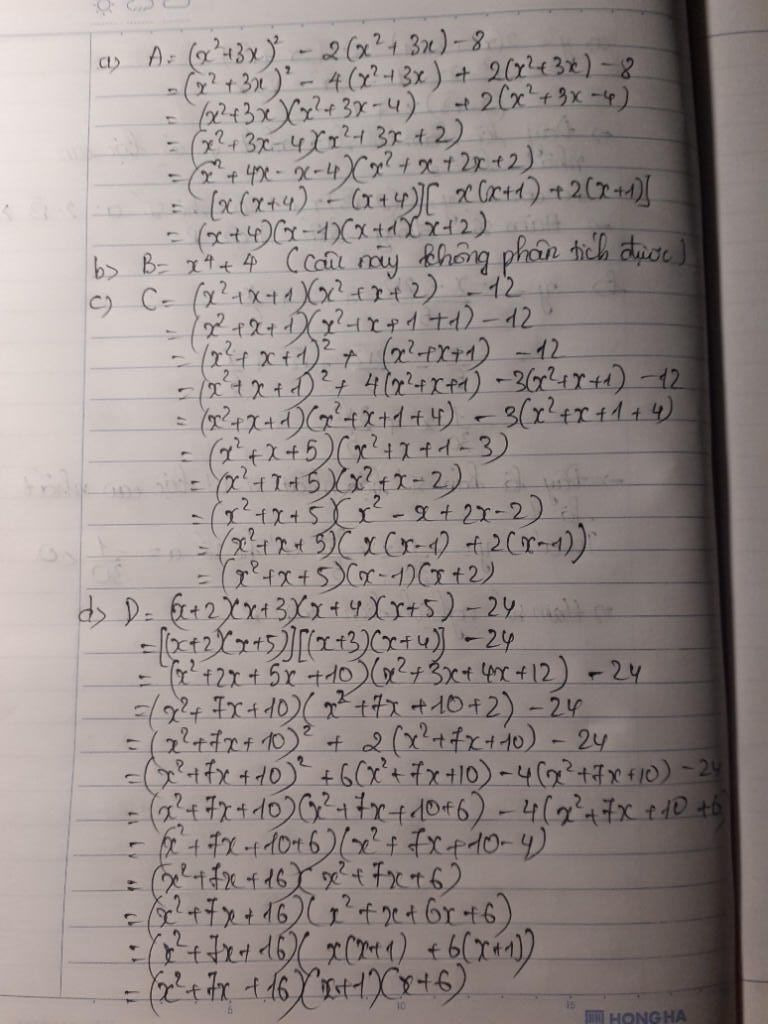 a) A = (x²+3x)² - 2(x²+3x) - 8
= (x²+3x)² - 4(x²+3x) + 2(x²+3x) - 8
= (x²+3x)(x²+3x-4) + 2(x²+3x-4)
= (x²+3x-4)(x²+3x+2)
= (x²+4x-x-4)(x²+x+2x+2)
= [x(x+4) - (x+4)][x(x+1)+2(x+1)]
= (x+4)(x-1)(x+1)(x+2)
b) B = x⁴+4 (Câu này không phân tích được)
c) C = (x²+x+1)(x²+x+2) - 12
= (x²+x+1)(x²+x+1+1) - 12
= (x²+x+1)² + (x²+x+1) - 12
= (x²+x+1)² + 4(x²+x+1) - 3(x²+x+1) - 12
= (x²+x+1)(x²+x+1+4) - 3(x²+x+1+4)
= (x²+x+5)(x²+x+1-3)
= (x²+x+5)(x²+x-2)
= (x²+x+5)(x²-x+2x-2)
= (x²+x+5)(x(x-1)+2(x-1))
= (x²+x+5)(x-1)(x+2)
d) D = (x+2)(x+3)(x+4)(x+5) - 24
= [(x+2)(x+5)][(x+3)(x+4)] - 24
= (x²+2x+5x+10)(x²+3x+4x+12) - 24
= (x²+7x+10)(x²+7x+10+2) - 24
= (x²+7x+10)² + 2(x²+7x+10) - 24
= (x²+7x+10)² + 6(x²+7x+10) - 4(x²+7x+10) - 24
= (x²+7x+10)(x²+7x+10+6) - 4(x²+7x+10+6
= (x²+7x+10+6)(x²+7x+10-4)
= (x²+7x+16)(x²+7x+6)
= (x²+7x+16)(x²+x+6x+6)
= (x²+7x+16)(x(x+1)+6(x+1))
= (x²+7x+16)(x+1)(x+6)
5 10 15
HONG HA